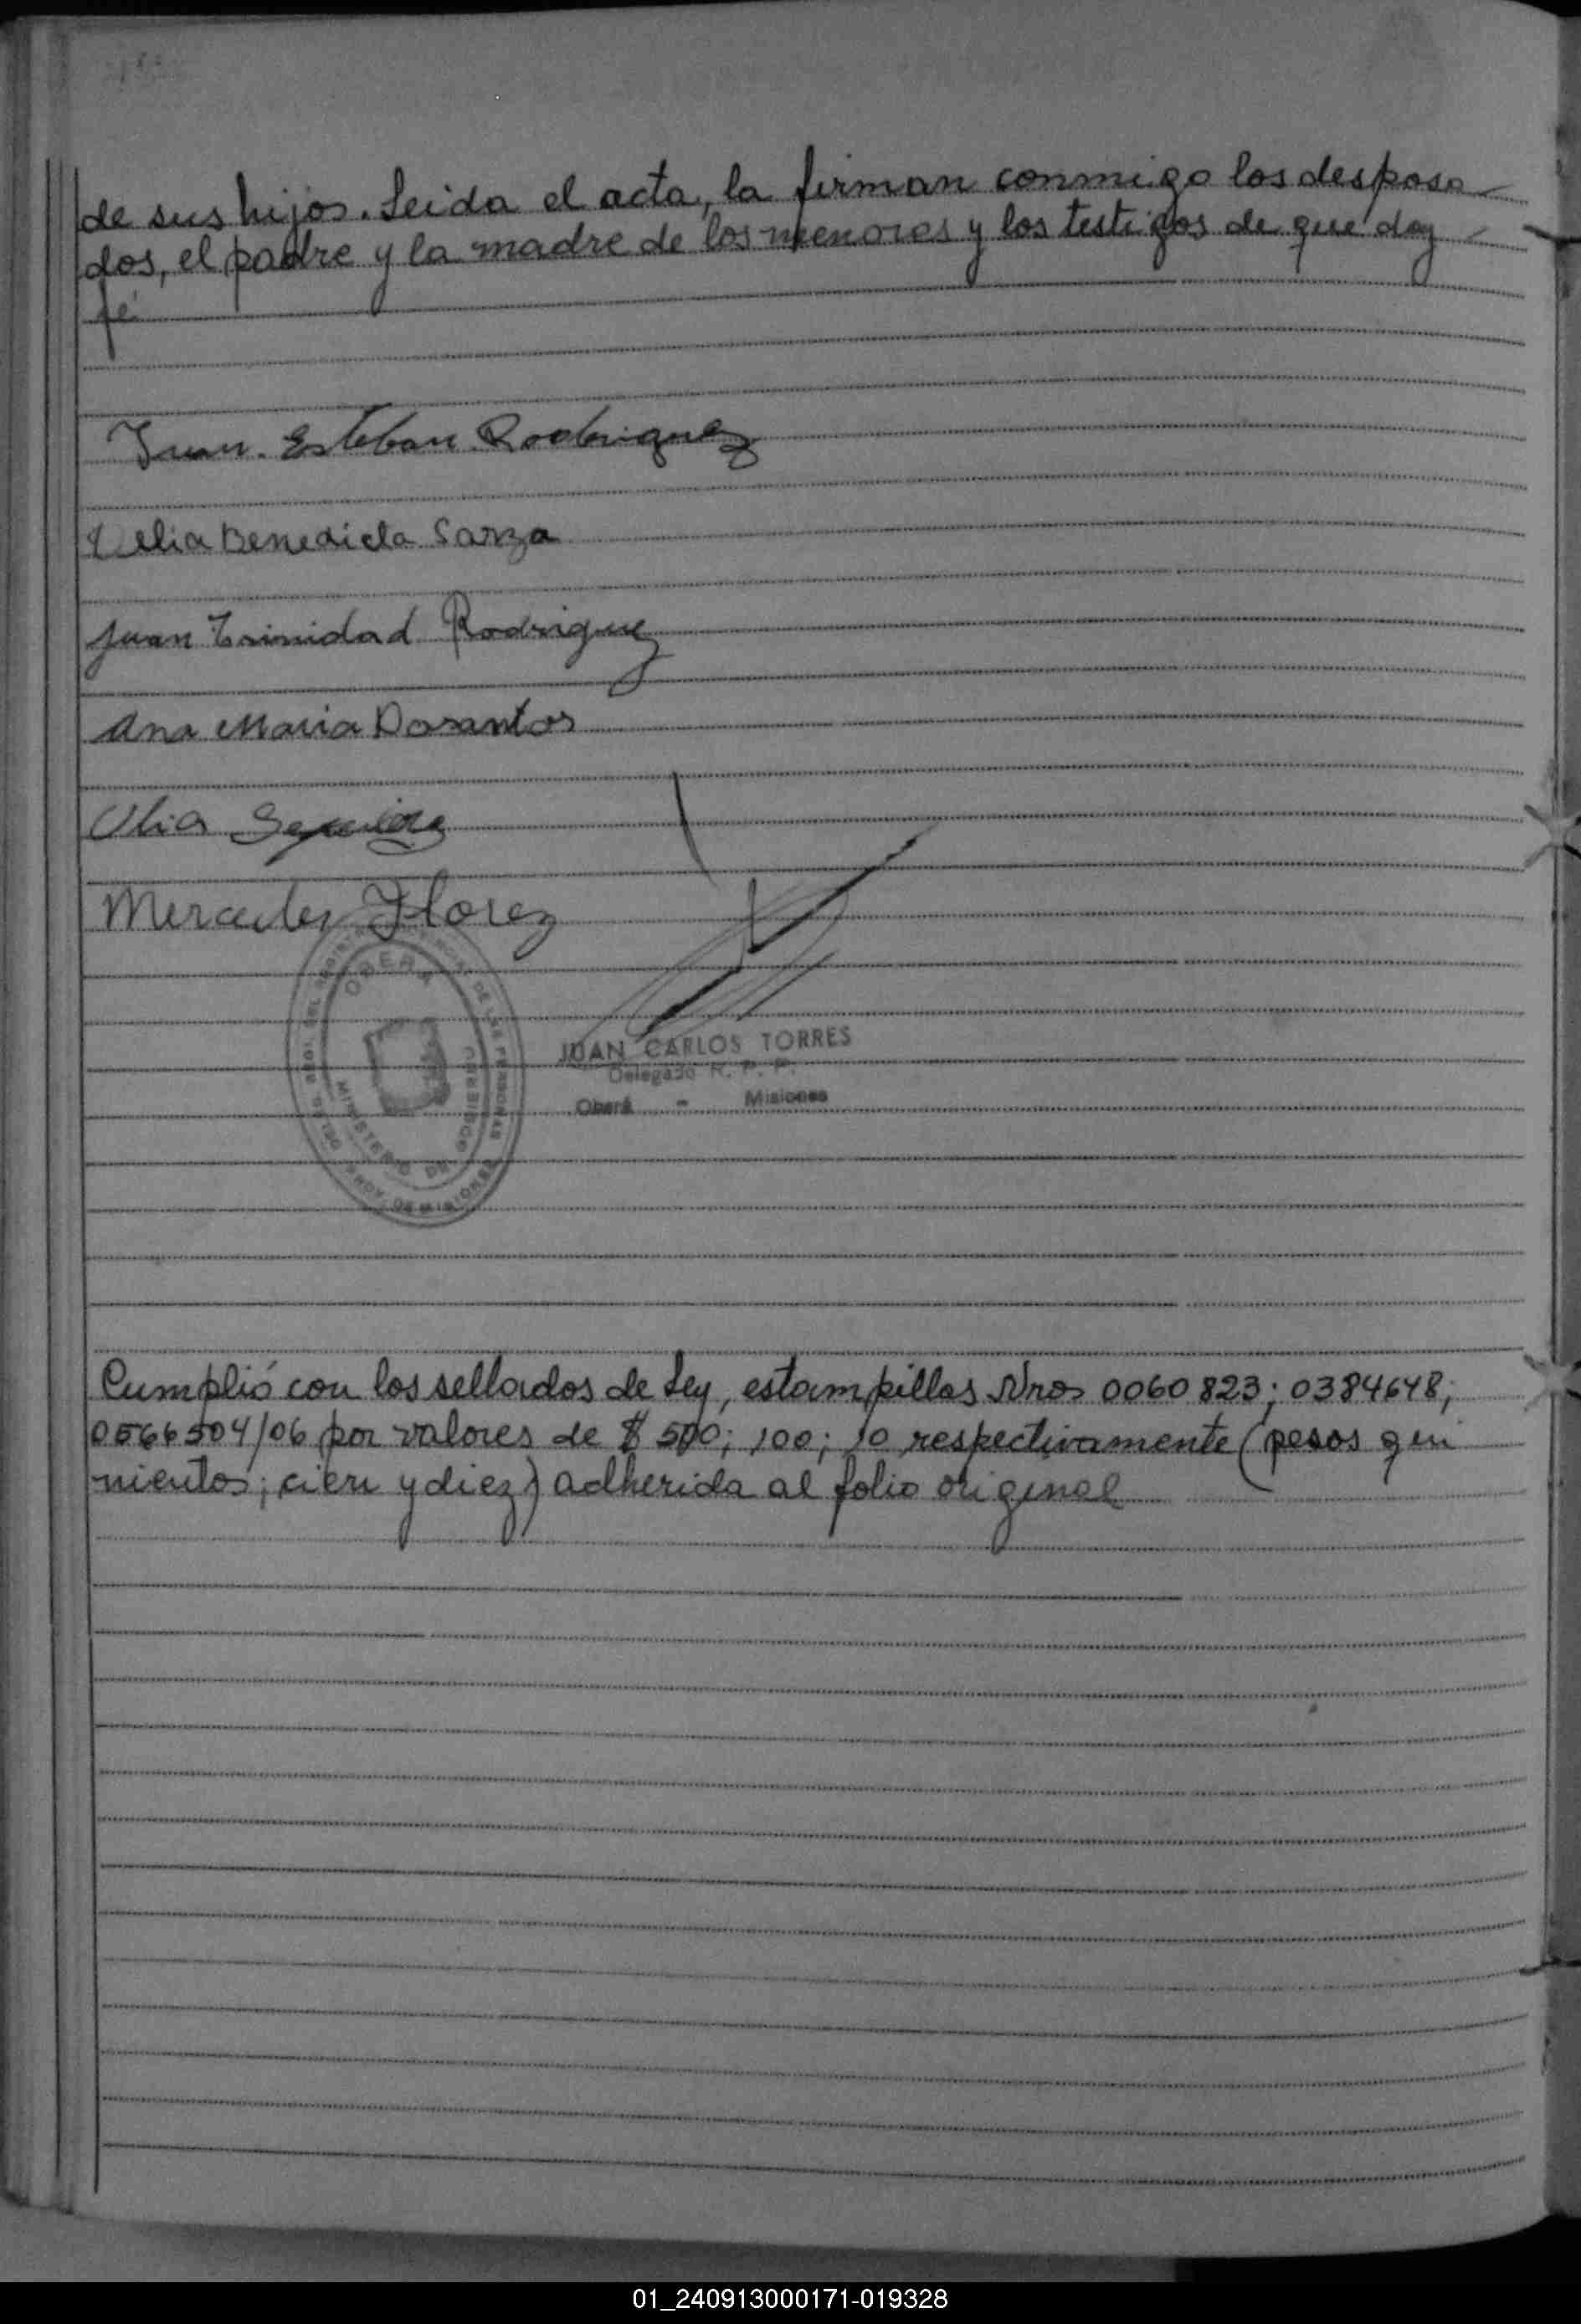 de sus hijos. Leida el acta, la firman conmigo los desposa
dos, el padre y la madre de los menores y los testigos de que doy
fé
Juan. Esteban Rodriguez
Celia Benedicta Sarza
Juan Trinidad Rodriguez
Ana Maria Dosantos
Mercedes Florez
OBERA
MINISTERIO DE GOBIERNO
PROV. DE MISIONES
JUAN CARLOS TORRES
Delegado R. P. P.
Oberá - Misiones
Cumplió con los sellados de Ley, estampillas Nros 0060823; 0384648;
0566504/06 por valores de $ 500; 100; 10 respectivamente (pesos qui
nientos; cien y diez) adherida al folio original
01_240913000171-019328